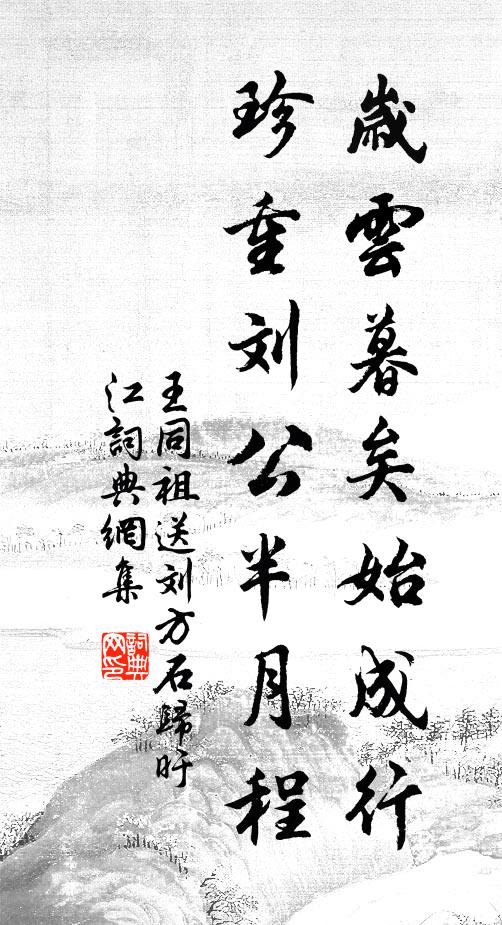 歲雲暮矣始成行
珍重刘公半月程
王同祖送刘方石歸旴
江詞典網集
詞典网印